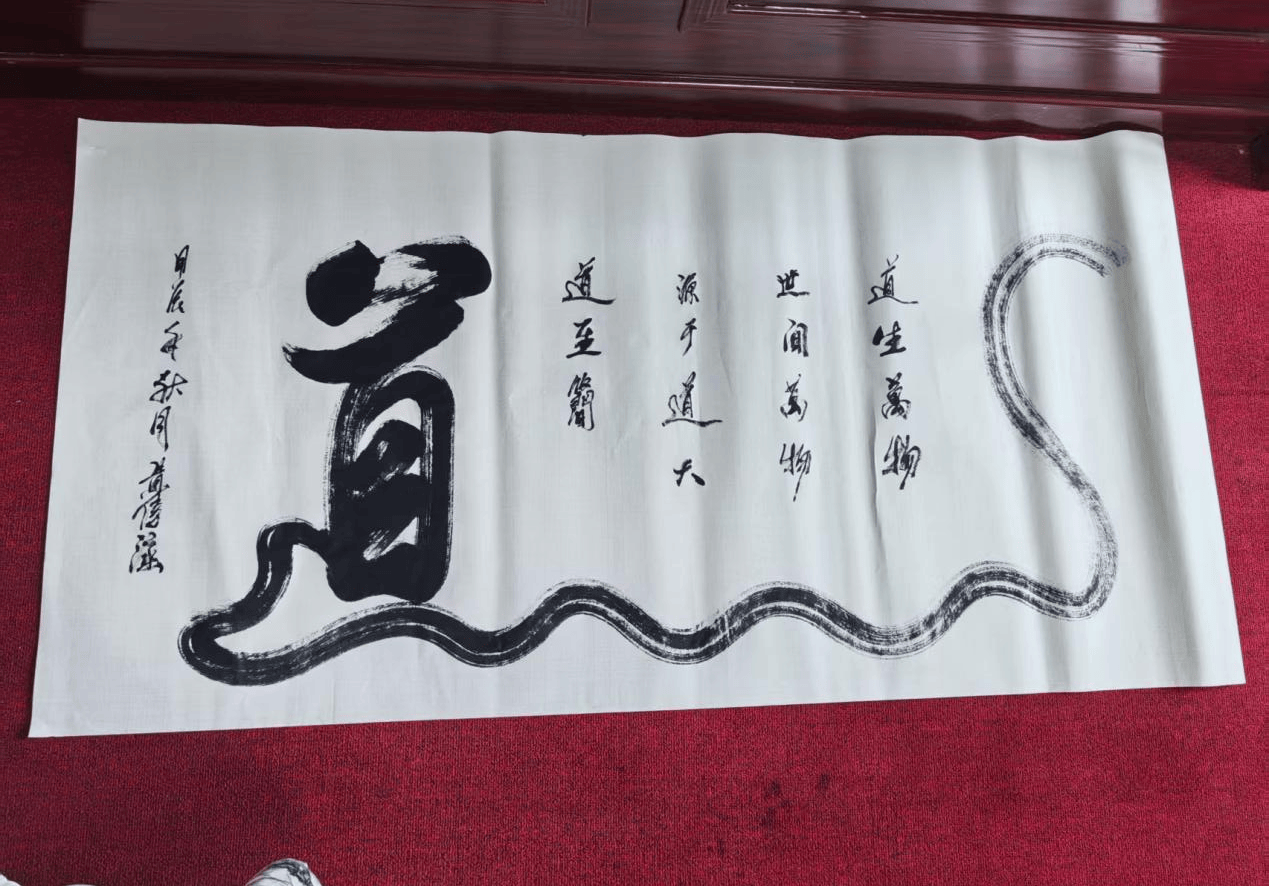 道生萬物
世间萬物
源于道大
道至簡
道
甲辰年秋月